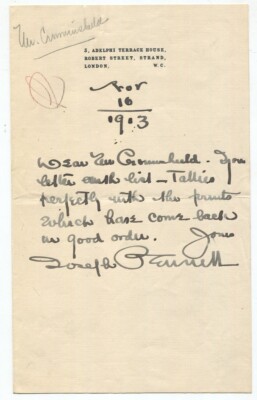 Mr. Crominshield
3, ADELPHI TERRACE HOUSE,
ROBERT STREET, STRAND,
LONDON, W.C.
Nov
16
1913
Dear Mr Crominshield. Your
letter with list — Tallies
perfectly with the prints
which have come back
in good order. Yours
Joseph Pennell